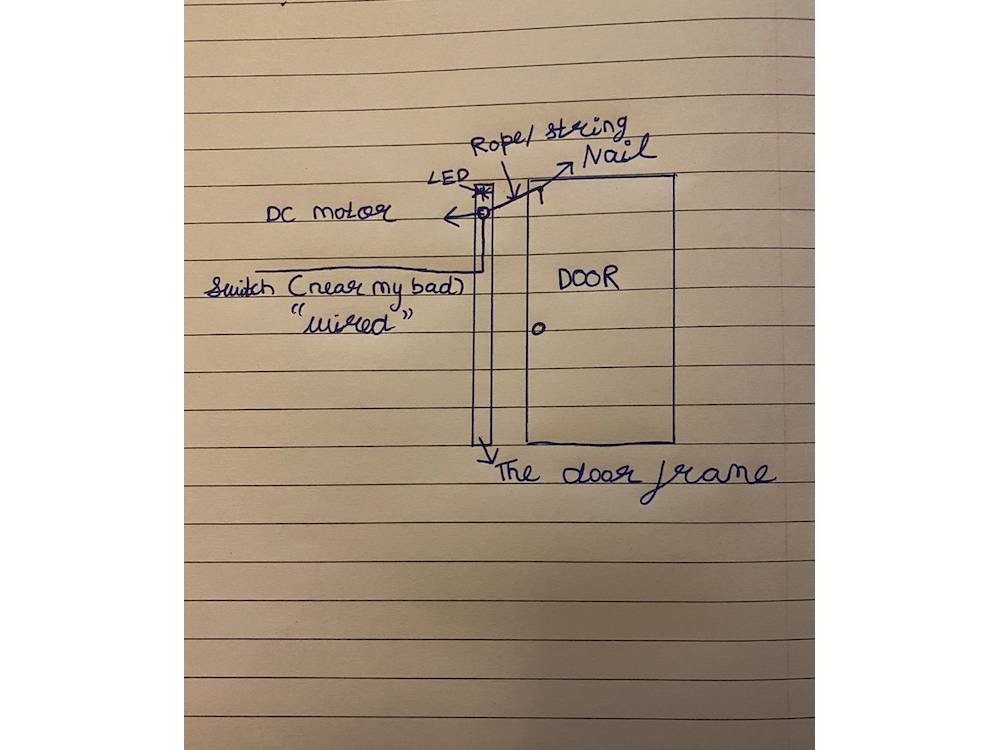 Rope/ string
Nail
LED
DC motor
Switch (near my bad)
"wired"
DOOR
The door frame